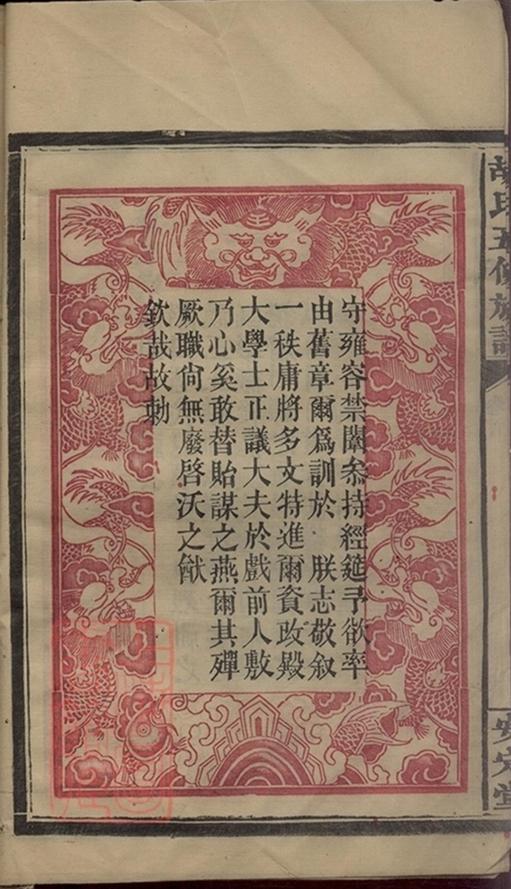 守雍容禁闥叅持經筵予欲率
由舊章爾爲訓於 朕志敬叙
一秩庸將多文特進爾資政殿
大學士正議大夫於戲前人敷
乃心奚敢替貽謀之燕爾其殫
厥職尙無廢啓沃之猷
欽哉故勅
胡氏五修族譜
安定堂